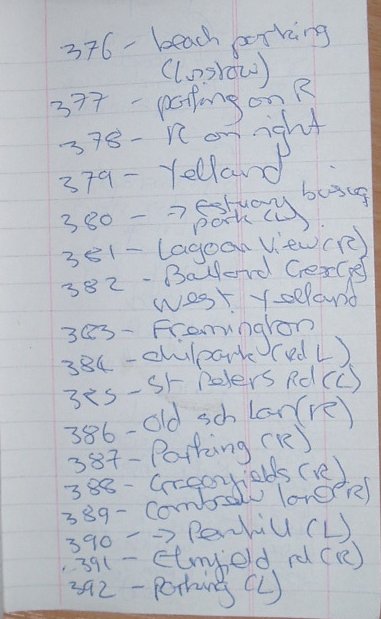 376 - beach parking
(Instow)
377 - parking on R
378 - R on right
379 - Yelland
380 - → Estuary busines
park (L)
381 - Lagoon View (R)
382 - Ballard Cres (R)
West Yelland
383 - Fremington
384 - (rd L)
385 - St Peters Rd (L)
386 - Old sch Lan (R)
387 - Parking (R)
388 - Greenfields (R)
389 - Combrew lane (R)
390 - → Penhill (L)
391 - Elmfield rd (R)
392 - Parking (L)